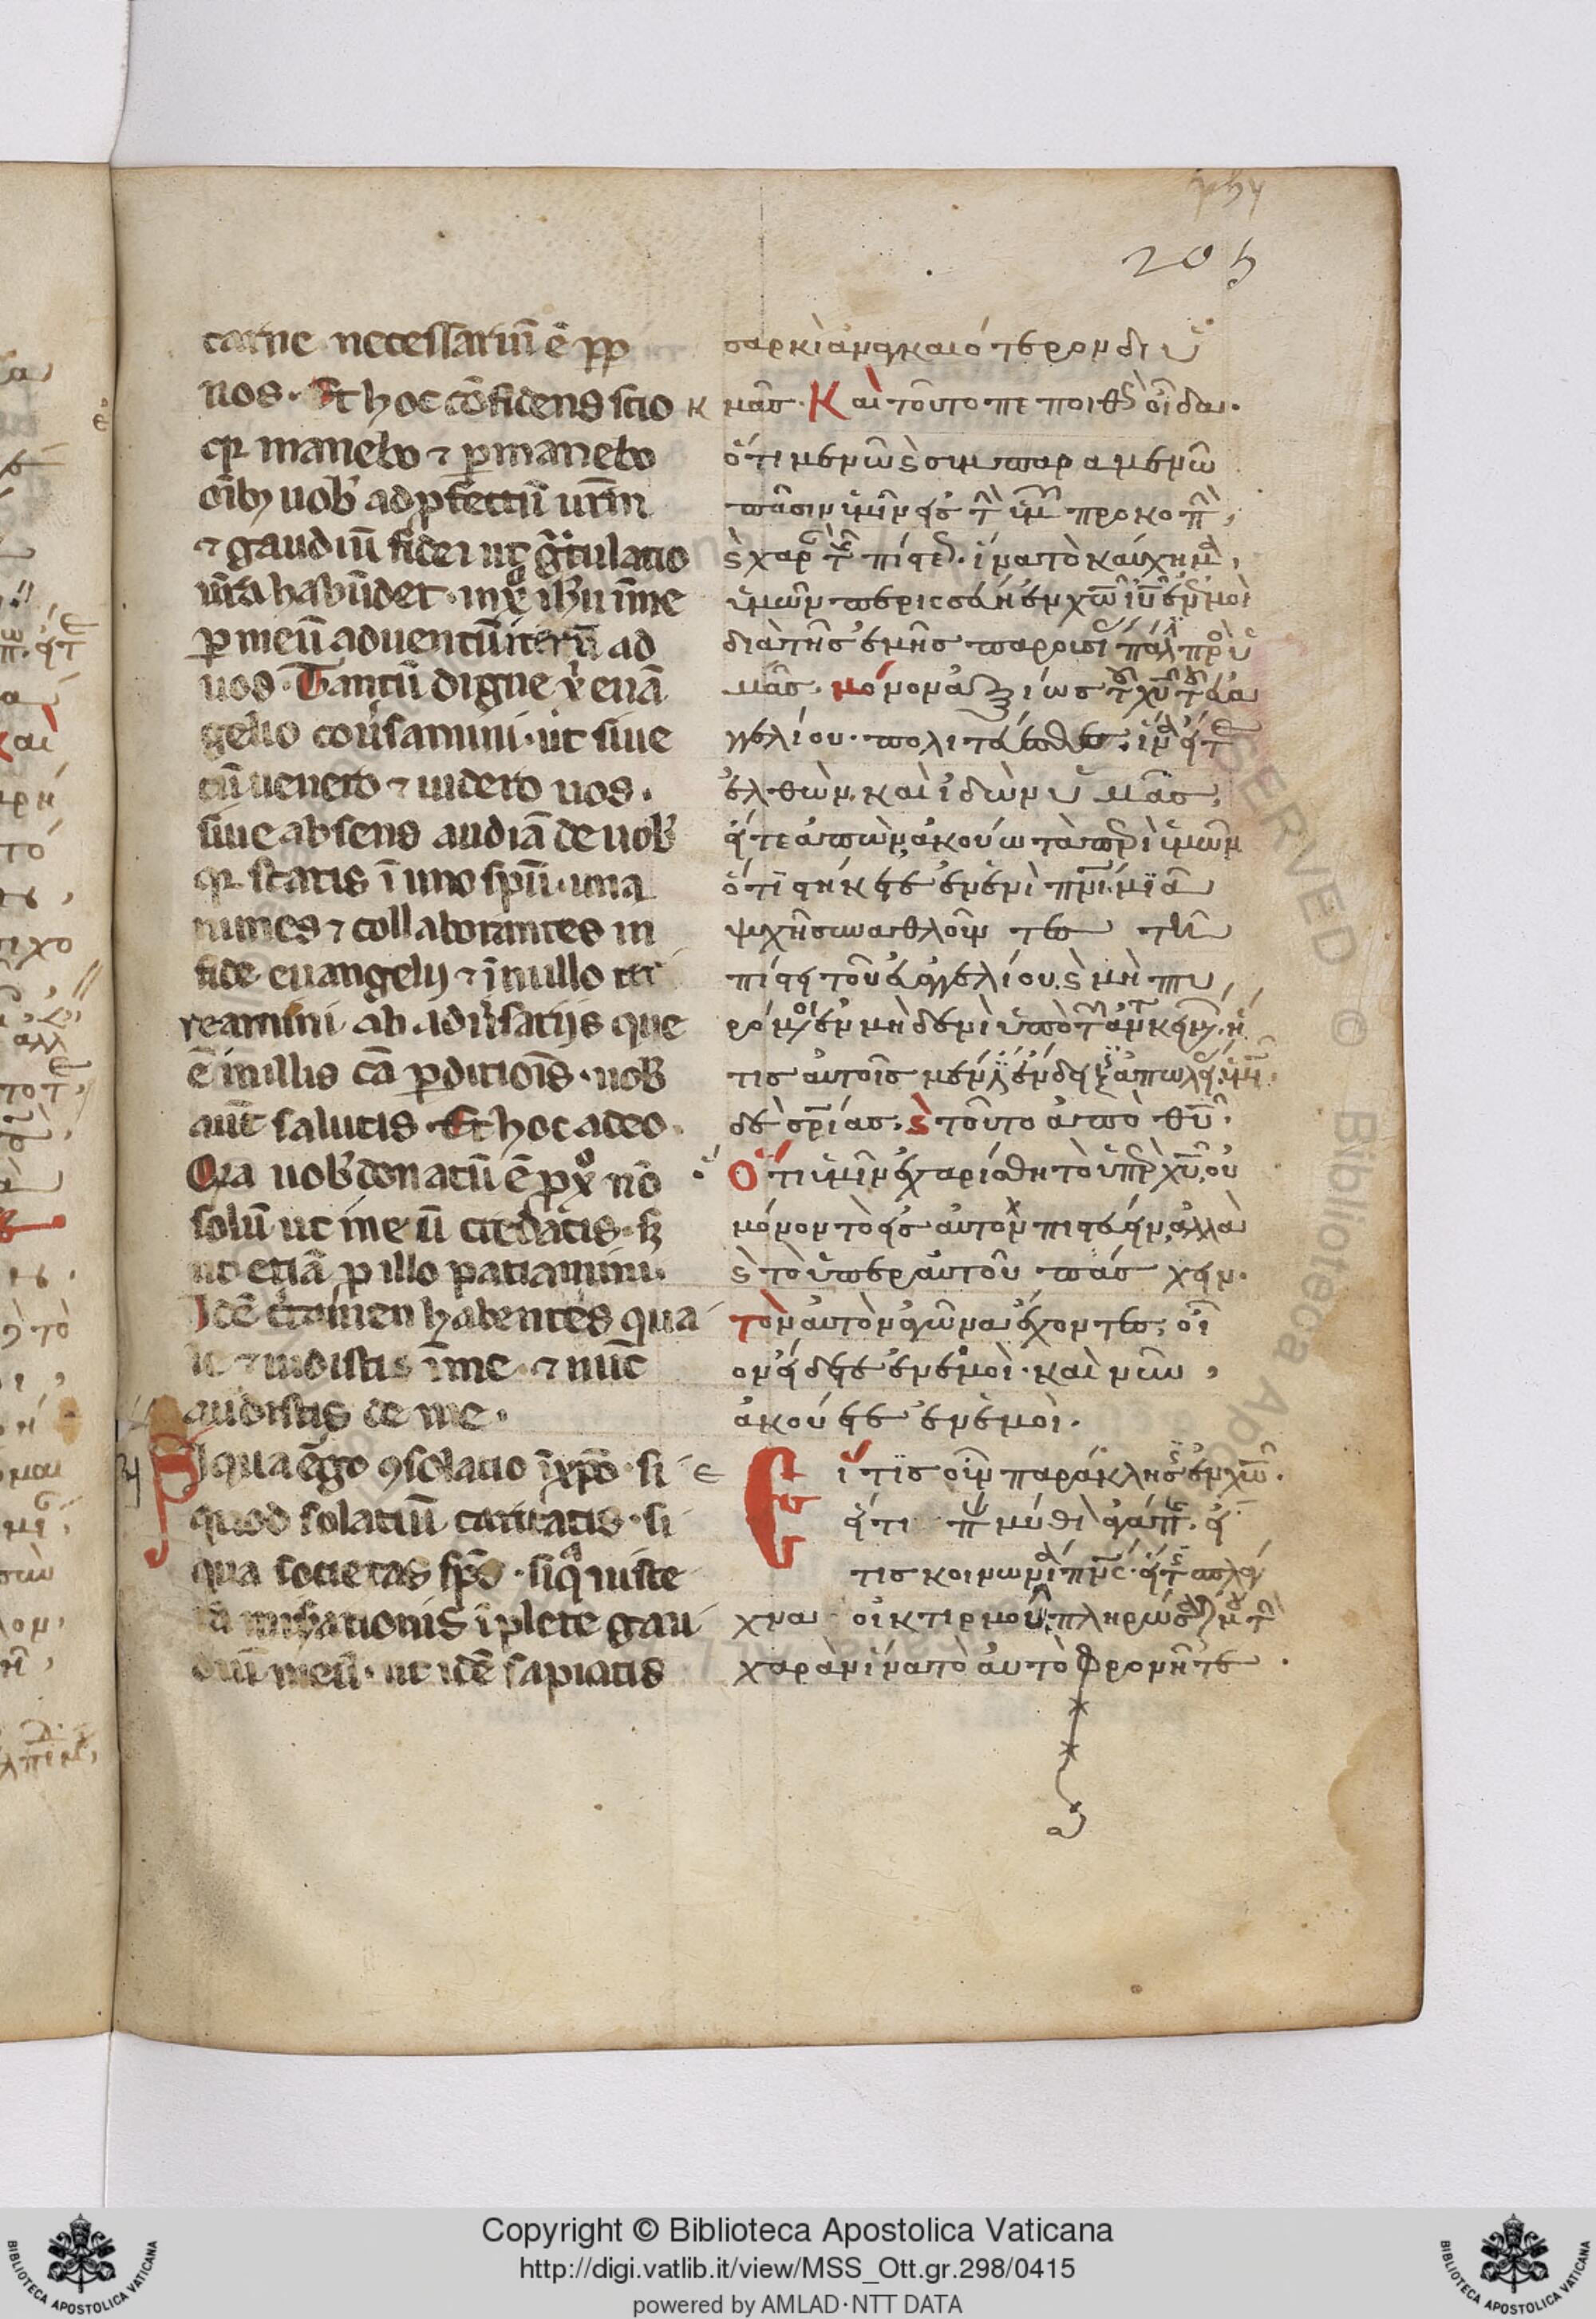 205
carne necessariū ē ꝓp
uos. Et hoc cōfidens scio
qr manebo ⁊ ꝑmanebo
oĩbꝫ uob̓ ad ꝓfectū ur̄m
⁊ gaudiū fidei ut gᵃtulatio
ur̄a habūdet. in xᵒ ih̄u ī me
ꝑ meū aduentū iterū ad
uos. Tantū digne xⁱ euā
gelio conũsamini. ut siue
cū uenero ⁊ uidero uos.
siue absens audiā de uob̓
qr statis ī uno sp̄u. una
nimes ⁊ collaborantes in
fide euangelij ⁊ ī nullo ter
reamini ab adũsarijs que
ē in illis cā ꝑditiōis. uob̓
aut̄ salutis. Et hoc a deo.
Qia uob̓ donatū ē ꝓ xᵒ nō
solū ut in eū credatis. sꝫ
ut etiā ꝓ illo patiamini.
Idē c̓tamen habentes qua
le ⁊ uidistis ī me. ⁊ nūc
audistis de me.
Si qua ēgo ꝯsolatio ī xp̄o. si
quod solatiū caritatis. si
qua societas sp̄s. siqᵃ uisce
ra mis̄ationis īplete gau
diū meū. ut idē sapiatis
σαρκὶ ἀναγκαιότερον δι ὑ
μᾶς. Καὶ τοῦτο πεποιθὼς οἶδα.
ὅτι μενῶ ϗ συμπαραμενῶ
πᾶσιν ὑμῖν εἰς τὴν ὑμῶν προκοπὴν,
ϗ χαρὰν τῆς πίστεως. ἵνα τὸ καύχημα,
ὑμῶν περισσεύη ἐν χω̄ ιῡ ἐν ἐμοὶ
διὰ τῆς ἐμῆς παρουσίας πάλιν πρὸς ὑ
μᾶς. μόνον ἀξίως τοῦ χῡ τοῦ εὐα
γγελίου. πολιτεύεσθε. ἵνα εἴτε
ἐλθὼν, καὶ ἰδὼν ὑμᾶς,
εἴτε ἀπὼν, ἀκούω τὰ περὶ ὑμῶν
ὅτι στήκετε ἐν ἑνὶ πνῑ. μϊᾶ
ψυχῆ συναθλοῦντες τῆ
πίστει τοῦ εὐαγγελίου. ϗ μὴ πτυ,
ρόμενοι ἐν μηδενὶ ὑπὸ τῶν ἀντικειμένων. ἥ
τις αὐτοῖς μέν ἐστιν ἔνδειξις ἀπωλείας, ὑμῖν
δὲ σρ̄ίας. ϗ τοῦτο ἀπὸ θῡ.
Ὅτι ὑμῖν ἐχαρίσθη τὸ ὑπὲρ χῡ, οὐ
μόνον τὸ εἰς αὐτὸν πιστεύειν, ἀλλὰ
ϗ τὸ ὑπὲρ αὐτοῦ πάσχειν.
τὸν αὐτὸν ἀγῶνα ἔχοντες, οἷ
ον εἴδετε ἐν ἐμοὶ. καὶ νῦν,
ἀκούετε ἐν ἐμοὶ.
Εἴ τϊς οὖν παράκλησις ἐν χω̄.
εἴ τι παραμύθιον ἀγάπης. εἴ
τις κοινωνία πνς̄. εἴ τις σπλά
χνα οἰκτιρμοὶ, πληρώσατέ μου τὴν
χαρὰν ἵνα τὸ αὐτὸ φρονῆτε.
Copyright © Biblioteca Apostolica Vaticana
http://digi.vatlib.it/view/MSS_Ott.gr.298/0415
powered by AMLAD·NTT DATA